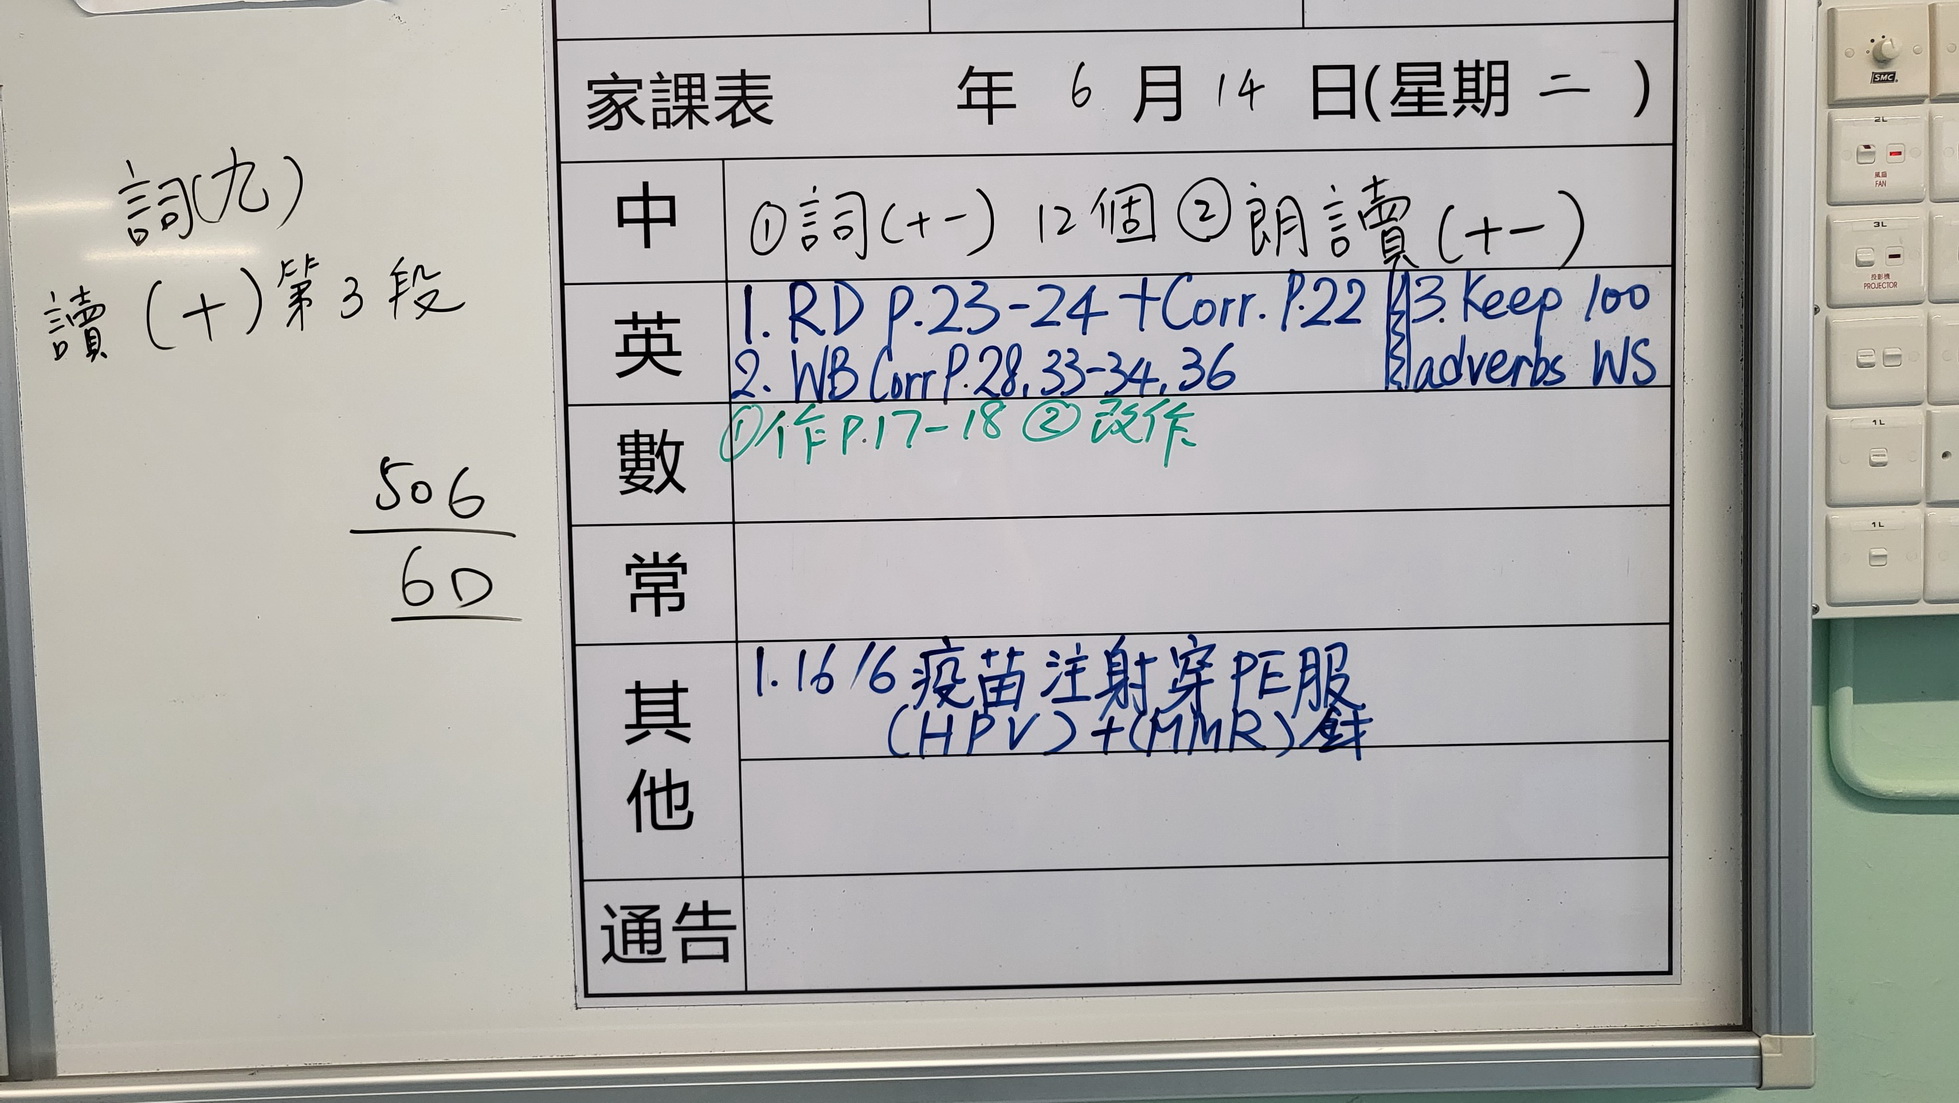 詞(九)
讀(十)第3段
506
6D
家課表 年 6 月 14 日(星期 二 )
中 ①詞(十一) 12個 ②朗讀(十一)
英 1. RD P.23-24 + Corr. P.22 3. Keep 100
2. WB Corr P.28, 33-34, 36 adverbs WS
數 ①作P.17-18 ②改作
常
其他 1. 16/6 疫苗注射穿PE服
(HPV)+(MMR)針
通告
SMC
2L
風扇
FAN
3L
投影機
PROJECTOR
1L
1L